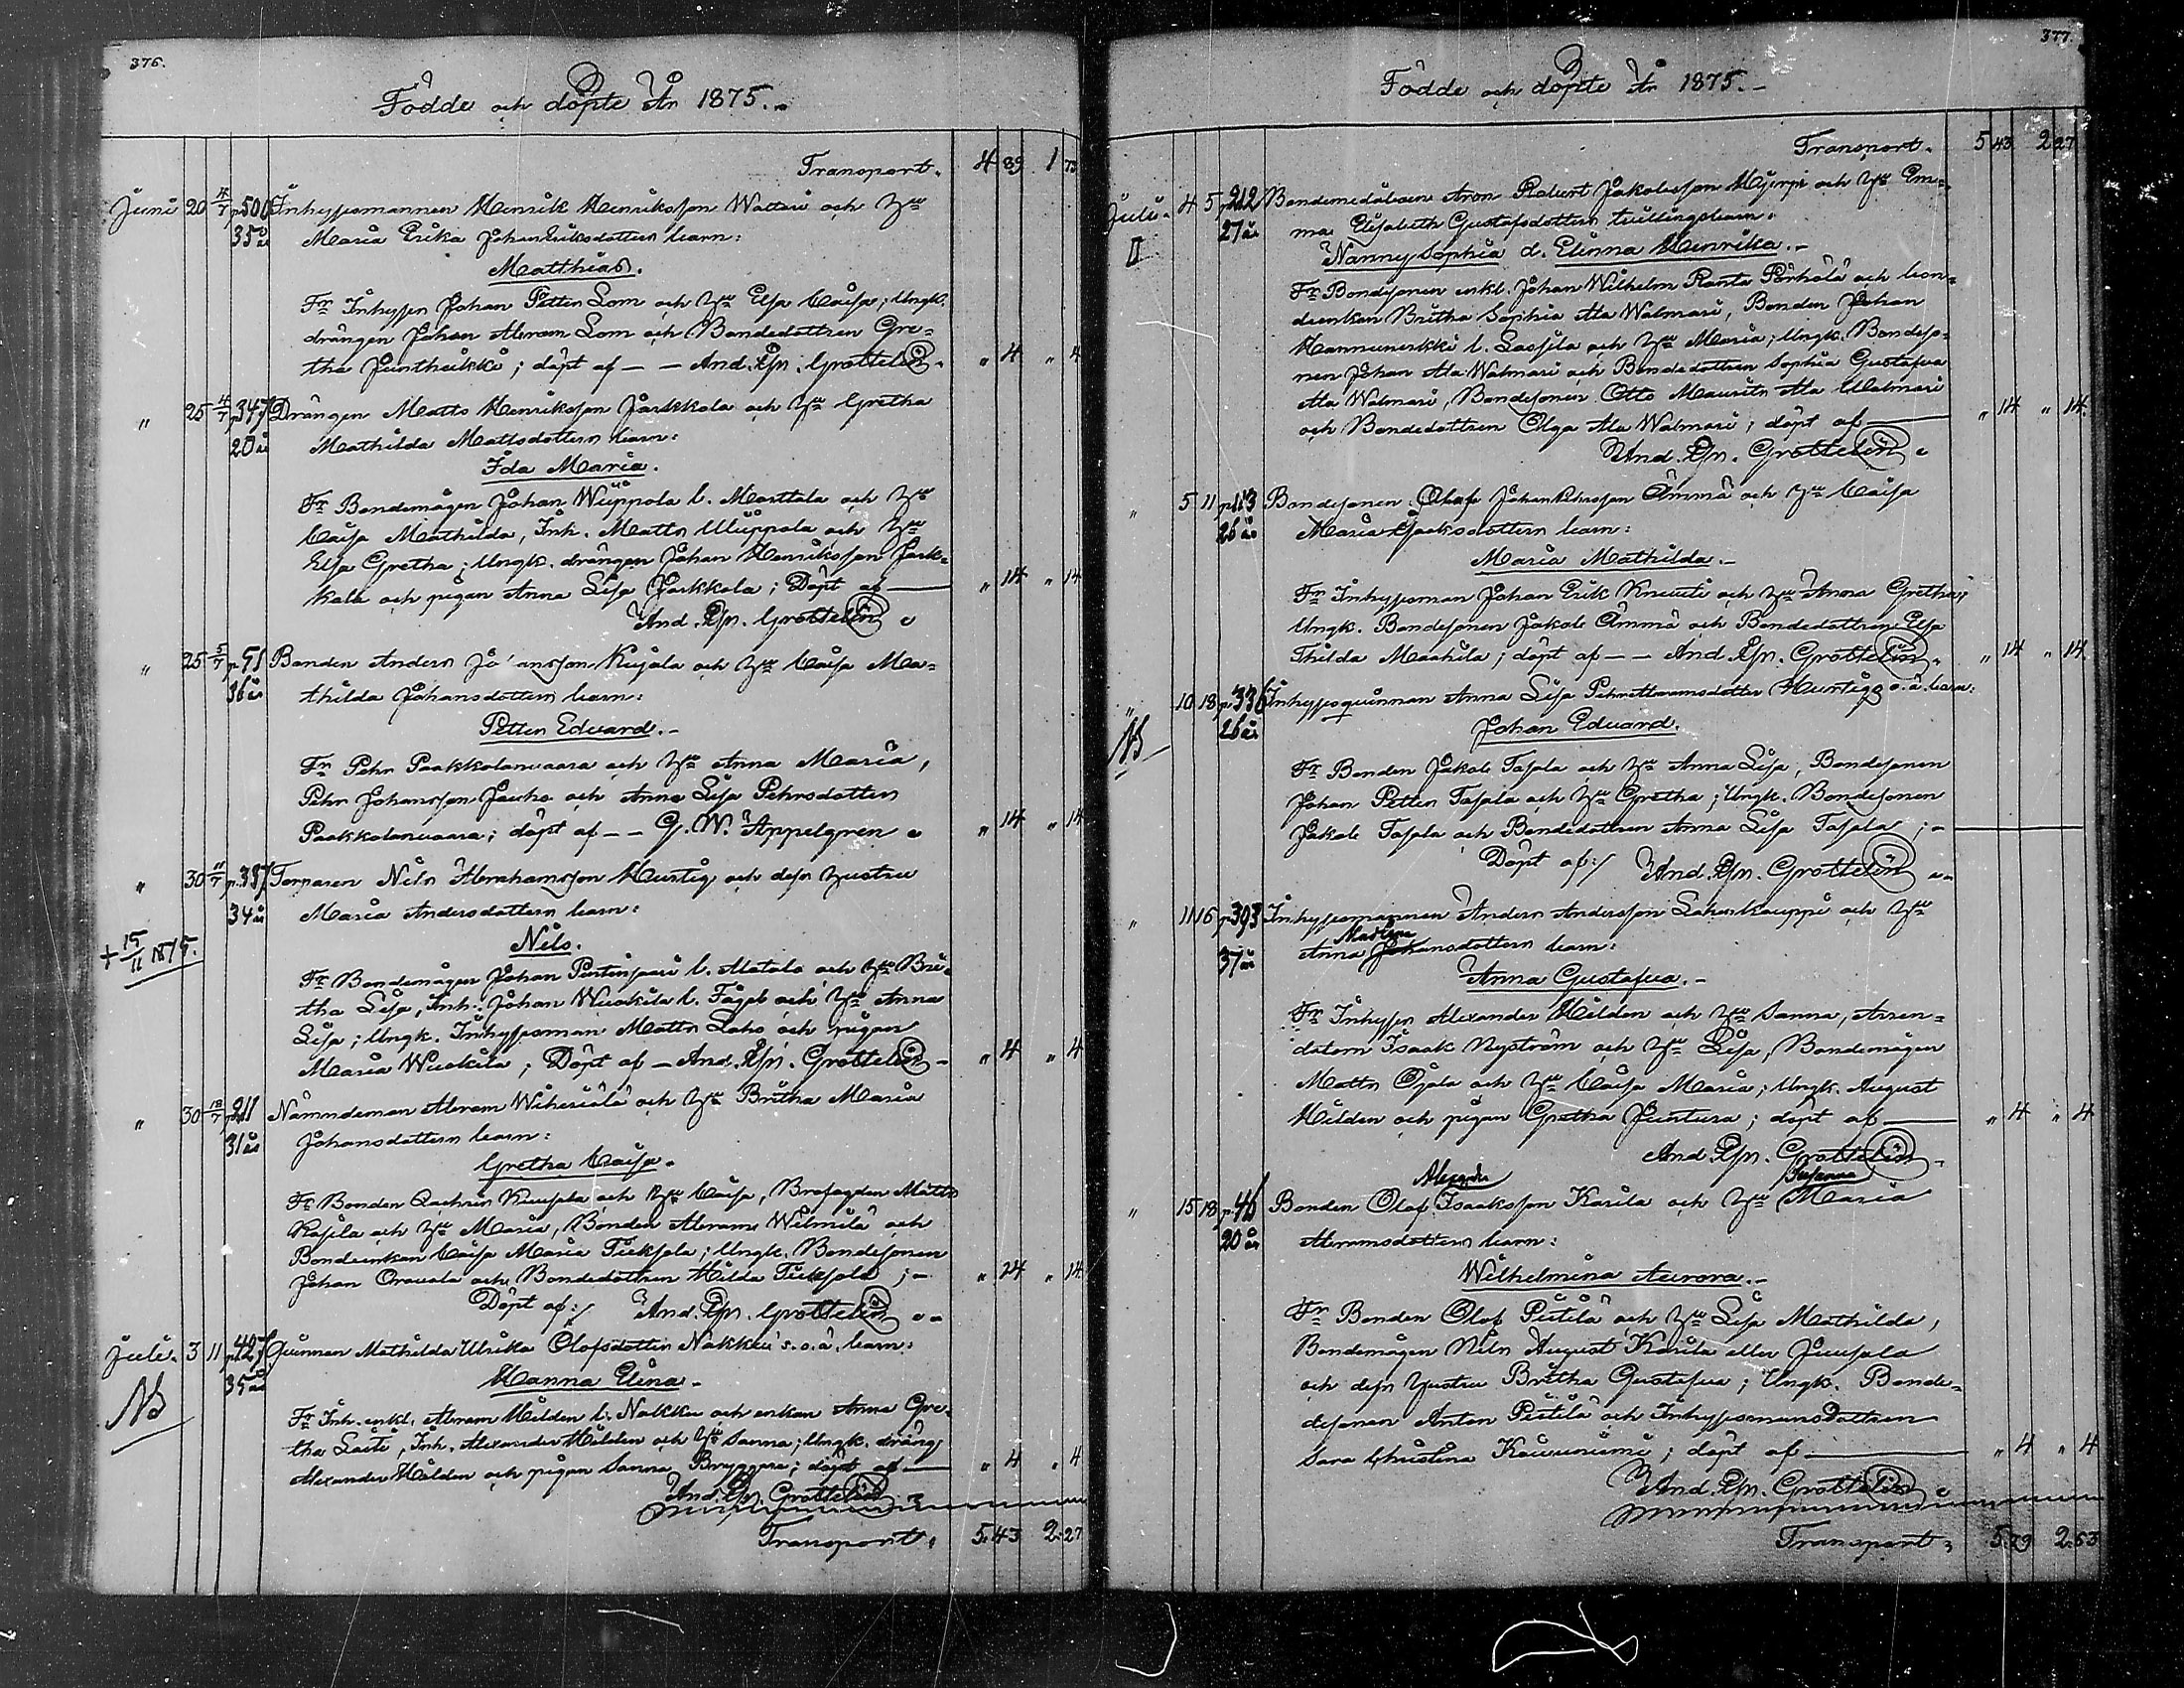 376.
Födde och döpte År 1875.
Transport. 4 89 1 73
Juni 20 4/7 p.500 Inhysesmannen Henrik Henriksson Wattari och Hu
35 år Maria Erika Johan Eriksdotters barn:
Matthias.
Fr Inhyses Johan Petter Lom och Hu Elsa Caisa; Ungk.
drängen Johan Abram Lom och Bondedottren Gre-
tha Juntheikki; döpt af — — And. Esn. Grottelin. " 4 " 4
" 25 4/7 p.347 Drängen Matts Henriksson Jarkkola och Hu Gretha
20 år Mathilda Mattsdotters barn:
Ida Maria.
Fr Bondemågen Johan Wuippola l. Marttala och Hu
Caisa Mathilda, Inh. Matts Wuippola och Hu
Elsa Gretha; Ungk. drängen Johan Henriksson Jark-
kola och pigan Anna Lisa Jarkkola; Döpt af — " 14 " 14
And. Esn. Grottelin
" 25 5/7 Bonden Anders Johansson Kujala och Hu Caisa Ma-
36 år thilda Johansdotters barn:
Petter Edvard. -
Fr Pehr Paakkolanvaara och Hu Anna Maria,
Pehr Johansson Jauho och Anna Lisa Pehrsdotter
Paakkolanvaara; döpt af — — G. W. Appelgren " 14 " 14
" 30 11/7 p.387 Torparen Nils Abrahamsson Hurtig och dess hustru
34 år Maria Andersdotters barn:
+ 15/11 1875. Nils.
Fr Bondemågen Johan Pertinpari l. Alatalo och Hu Bri-
tha Lisa, Inh. Johan Wuokila l. Fågel och Hu Anna
Lisa; Ungk. Inhysesman Matts Laho och pigan
Maria Wuokila; Döpt af — And. Esn. Grottelin - " 4 " 4
" 30 18/7 p.211 Nämndeman Abram Wiheriälä och Hu Britha Maria
31 år Johansdotters barn:
Gretha Caisa.
Fr Bonden Zachris Kuusela och Hu Caisa, Brofogden Matts
Rasila och Hu Maria, Bonden Abram Wilmilä och
Bondeenkan Caisa Maria Tiuksola; Ungk. Bondesonen
Johan Oravala och Bondedottren Hilda Tiuksola; - " 24 " 14
Döpt af:/ And. Esn. Grottelin
Juli. 3 11 p.427 Quinnan Mathilda Ulrika Olofsdotter Nakkus o.ä. barn:
NB 35 år Hanna Elina. -
Fr Inh. enkl. Abram Hilden l. Nakku och enkan Anna Gre-
tha Laiti, Inh. Alexander Hilden och Hu Sanna; Ungk. dräng
Alexander Hilden och pigan Sanna Bryggare; döpt af — " 4 " 4
And. Esn. Grottelin
Transport. 5.43 2.27
377.
Födde och döpte År 1875. -
Transport. 5 43 2 27
Juli. 4 5 p.212 Bondemedåboen Aron Robert Jakobsson Mjerpi och Hu Em-
II 27 år ma Elisabeth Gustafsdotters tvillingsbarn:
Nanny Sophia d. Elinna Henrika. -
Fr Bondesonen enkl. Johan Wilhelm Ranta Pörhölä och bon-
deenkan Britha Sophia Ala Walmari, Bonden Johan
Hannuneikki l. Lassila och Hu Maria; Ungk. Bondeso-
nen Johan Ala Walmari och Bondedottren Sophia Gustafva
Ala Walmari, Bondesonen Otto Maurits Ala Walmari
och Bondedottren Olga Ala Walmari; döpt af — " 14 " 14.
And. Esn. Grottelin
" 5 11 p.113 Bondesonen Olof Johan Pehrsson Ämmä och Hu Caisa
26 år Maria Isaksdotters barn:
Maria Mathilda. -
Fr Inhysesman Johan Erik Kneuti och Hu Anna Gretha;
Ungk. Bondesonen Jakob Ämmä och Bondedottren Elsa
Thilda Maahila; döpt af — — And. Esn. Grottelin " 14 " 14.
" 10 18 p.336 Inhysesquinnan Anna Lisa Pehr Abramsdotter Hurtigs o.ä. barn:
NB 26 år Johan Edvard.
Fr Bonden Jakob Tasala och Hu Anna Lisa, Bondesonen
Johan Petter Tasala och Hu Gretha; Ungk. Bondesonen
Jakob Tasala och Bondedottren Anna Lisa Tasala; -
Döpt af:/ And. Esn. Grottelin
" 11 16 p.393 Inhysesmannen Anders Andersson Lahenkauppi och Hu
37 år Anna Johansdotters barn:
Anna Gustafva. -
Fr Inhyses Alexander Hilden och Hu Sanna, Arren-
datorn Isaak Nyström och Hu Lisa, Bondemågen
Matts Ojala och Hu Caisa Maria; Ungk. August
Hilden och pigan Gretha Juntura; döpt af — " 4 " 4
And. Esn. Grottelin
Alexander Susanna
" 15 18 p.46 Bonden Olof Isaaksson Karila och Hu Maria
20 år Abramsdotters barn:
Wilhelmina Aurora. -
Fr Bonden Olof Pietilä och Hu Lisa Mathilda,
Bondemågen Nils August Karila eller Juusola
och dess hustru Britha Gustafva; Ungk. Bonde-
desonen Anton Pietilä och Inhysesmansdottren
Sara Christina Kauniinen; döpt af — " 4 " 4
And. Esn. Grottelin
Transport. 5.79 2.63